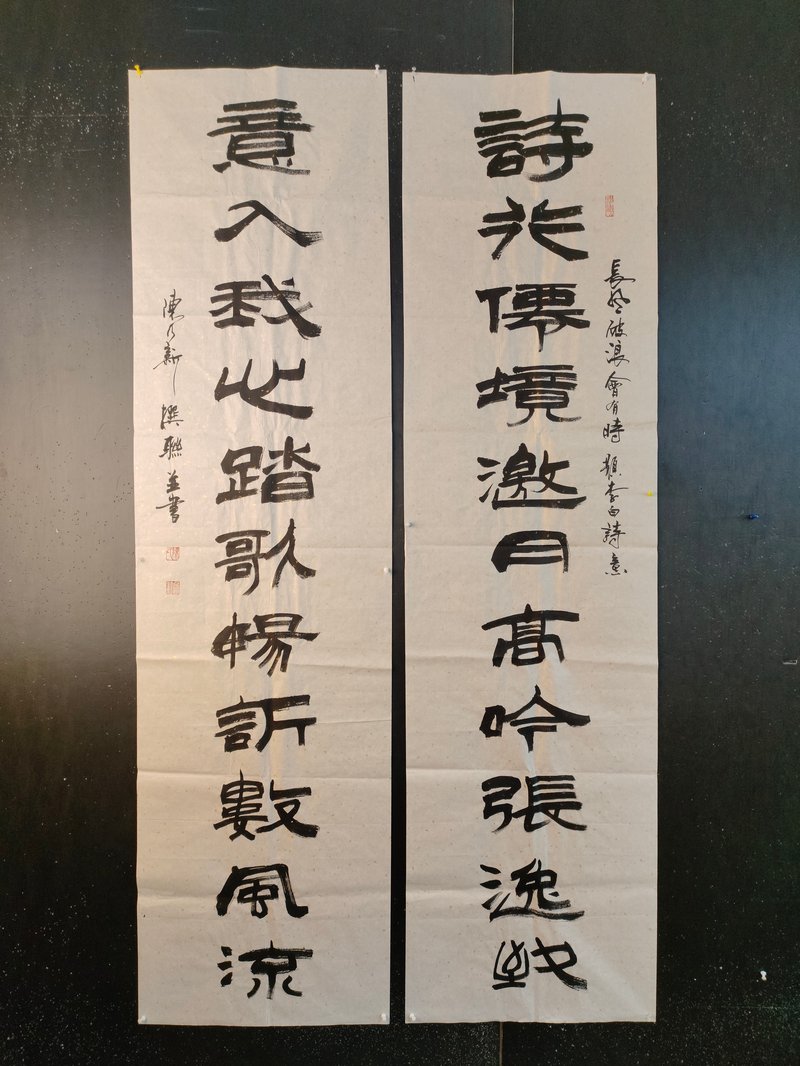 長風破浪會有時 題李白詩意
詩於僊境邀月高吟張逸致
意入我心踏歌暢訴數風流
陳乃新撰聯並書